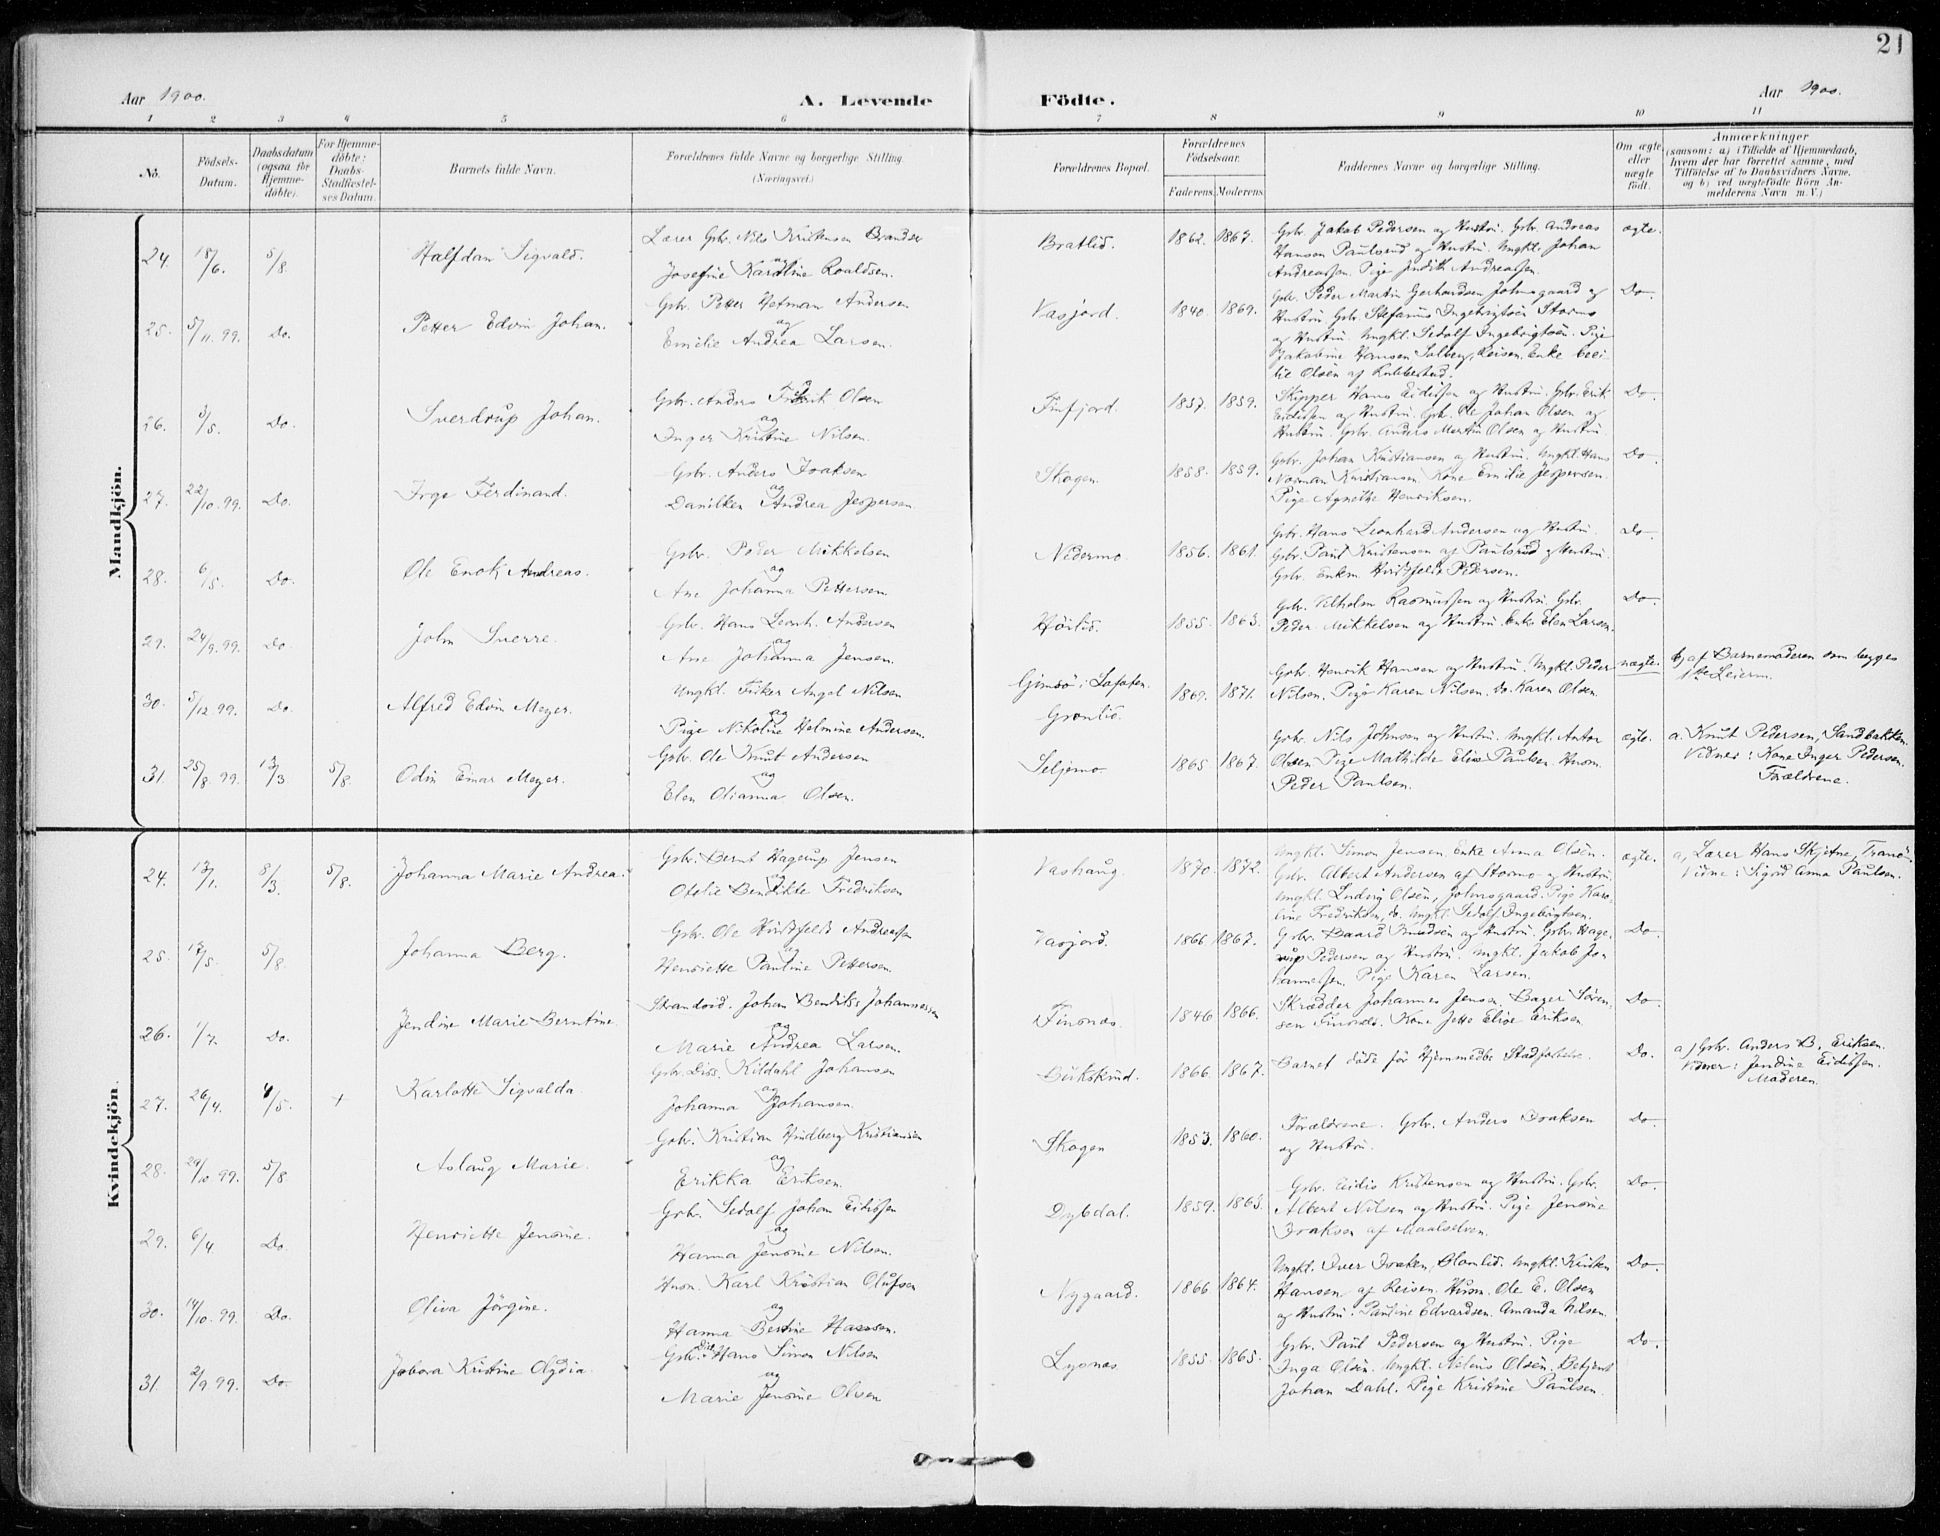 21
Aar 1900. A. Levende Födte. Aar 1900.
1 2 3 4 5 6 7 8 9 10 11
No. Födsels-Datum. Daabsdatum (ogsaa för Hjemme-döbte). For Hjemme-döbte: Daabs-Stadfæstel-ses Datum. Barnets fulde Navn. Forældrenes fulde Navne og borgerlige Stilling. (Næringsvei.) Forældrenes Bopæl. Forældrenes Födselsaar. Faderens. Moderens. Faddernes Navne og borgerlige Stilling. Om ægte eller uægte födt. Anmærkninger
(saasom: a) i Tilfælde af Hjemmedaab,
hvem der har forrettet samme, med
Tilföielse af to Daabsvidners Navne,
og b) ved uægtefödte Börn An-
melderens Navn m.V.)
Mandkjön.
24. 18/6. 5/8 Halfdan Sigvald.
Lærer Gbr. Nils Kristensen Brandser
og
Josefine Karoline Roaldsen.
Bratlid. 1862. 1867.
Gbr. Jakob Pedersen og Hustru. Gbr. Andreas
Hanson Paulsrud og Hustru. Ungkl. Johan
Andreassen. Pige Judith Andreassen.
ægte.
25. 5/11.99. Do. Petter Edvin Johan.
Gbr. Petter Hetman Andersen
og
Emilie Andrea Larsen.
Vasjord. 1840. 1869.
Gbr. Peder Martin Gerhardsen Johnsgaard og
Hustru. Gbr. Stefanus Ingebrigtsen Stormo
og Hustru. Ungkl. Sedolf Ingebrigtsen. Pige
Jakobine Hansen Solberg, Reisen. Enke Ceci-
lie Olsen af Kubbestad.
Do.
26. 3/5. Do. Sverdrup Johan.
Gbr. Anders Fredrik Olsen
og
Inger Kristine Nilsen.
Finfjord. 1857. 1859.
Skipper Hans Eidissen og Hustru. Gbr. Erik
Eidissen og Hustru. Gbr. Ole Johan Olsen og
Hustru. Gbr. Anders Martin Olsen og Hustru.
Do.
27. 22/10.99. Do. Inge Ferdinand.
Gbr. Anders Isaksen
og
Danilken Andrea Jespersen.
Skogen. 1858. 1859.
Gbr. Johan Kristiansen og Hustru. Ungkl. Hans
Norman Kristiansen. Kone Emilie Jespersen.
Pige Agnethe Henriksen.
Do.
28. 6/5. Do. Ole Enok Andreas.
Gbr. Peder Mikkelsen
og
Ane Johanna Pettersen.
Nedermo 1856. 1861.
Gbr. Hans Leonhard Andersen og Hustru.
Gbr. Paul Kristensen af Paulsrud og Hustru.
Gbr. Enkm. Hvidtfeldt Pedersen.
Do.
29. 24/9.99. Do. John Sverre.
Gbr. Hans Leonh. Andersen
og
Ane Johanna Jensen.
Höilid. 1855. 1863.
Gbr. Vilhelm Rasmussen og Hustru. Gbr.
Peder Mikkelsen og Hustru. Enke Elen Larsen.
Do.
30. 5/12.99. Do. Alfred Edvin Meyer.
Ungkl. Fiker Angel Nilsen
og
Pige Nikoline Helmine Andersen.
Gimsö i Lofoten.
Grönlid. 1869. 1871.
Gbr. Henrik Hansen og Hustru. Ungkl. Peder
Nilsen. Pige Karen Nilsen. do. Karen Olsen.
uægte.
b) af Barnemoderen som begges
1ste Leierm.
31. 25/8.99. 13/3 5/8. Odin Einar Meyer.
Gbr. Ole Knut Andersen
og
Elen Olianna Olsen.
Seljemo 1865 1867.
Gbr. Nils Johnsen og Hustru. Ungkl. Anton
Olsen. Pige Mathilde Elise Paulsen. Husm.
Peder Paulsen.
ægte.
a. Knut Pedersen, Sandbakken.
Vidner: Kone Inger Pedersen.
Forældrene.
Kvindekjön.
24. 13/1. 8/3. 5/8. Johanna Marie Andrea.
Gbr. Bernt Hagerup Jensen
og
Otelie Bendikte Fredriksen
Vashaug. 1870. 1872.
Ungkl. Simon Jensen. Enke Anna Olsen.
Gbr. Albert Andersen af Stormo og Hustru.
Ungkl. Ludvig Olsen, Johnsgaard. Pige Karo-
line Fredriksen, do. Ungkl. Sedolf Ingebrigtsen.
ægte.
a) Lærer Hans Skjetne, Tranö.
Vidne: Sigrid Anna Paulsen.
25. 17/5. 5/8. Johanna Berg.
Gbr. Ole Hvidtfeldt Andreassen
og
Henriette Pauline Pettersen.
Vasjord. 1866 1867.
Gbr. Baard Knudsen og Hustru. Gbr. Hage-
rup Pedersen og Hustru. Ungkl. Jakob Jo-
hannessen. Pige Karen Larsen.
Do.
26. 1/7. Do. Jendine Marie Berntine.
Strandsid. Johan Bendiks Johannessen
og
Marie Andrea Larsen.
Finsnæs. 1846 1866.
Skrædder Johannes Jensen. Bager Sören-
sen Finsnæs. Kone Jette Elise Eriksen
Do.
27. 26/4. 4/5. + Karlotte Sigvalda.
Gbr. Diss. Kildahl Johansen
og
Johanna Johansen.
Bukskind. 1866. 1867.
Barnet döde för Hjemmedbs Stadfæstelse.
Do.
a) Gbr. Anders B. Eriksen.
Vidner: Jendine Eidissen.
Moderen.
28. 29/10 99. 5/8 Aslaug Marie.
Gbr. Kristian Hindberg Kristiansen
og
Erikka Eriksen.
Skogen 1853. 1860.
Forældrene. Gbr. Anders Isaksen
og Hustru.
Do.
29. 6/4 Do. Henriette Jensine.
Gbr. Sedolf Johan Eidissen
og
Hanna Jensine Nilsen.
Dybdal. 1859. 1863.
Gbr. Eidis Kristensen og Hustru. Gbr.
Albert Nilsen og Hustru. Pige Jensine
Isaksen af Maalselven.
Do.
30. 14/10.99. Do. Oliva Jörgine.
Husm. Karl Kristian Olufsen
og
Hanna Bertine Hansen.
Nygaard. 1866 1864.
Ungkl. Iver Isaksen, Olamlid. Ungkl. Kristen
Hansen af Reisen. Husm. Ole E. Olsen
og Hustru. Pauline Edvardsen. Amanda Nilsen.
Do.
31. 2/9 99. Do. Jobora Kristine Olydia.
Gbr. Diss. Hans Simon Nilsen
og
Marie Jensine Olsen
Lysnæs 1855. 1865.
Gbr. Paul Pedersen og Hustru. Pige
Inga Olsen. Ungkl. Nelius Olsen. Betjent
Johan Dahl. Pige Kristine Paulsen.
Do.